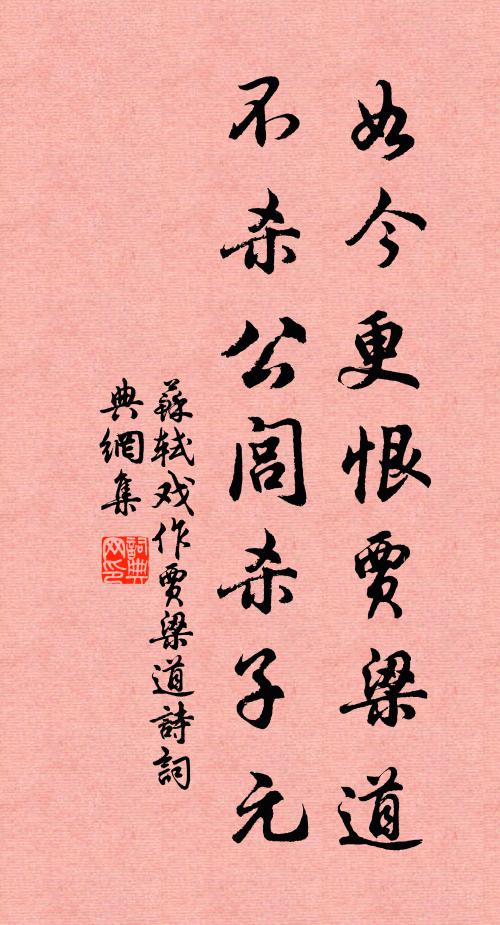 如今更恨賈梁道
不杀公閭杀子元
蘇軾戏作賈梁道詩詞
典網集
詞典
网印